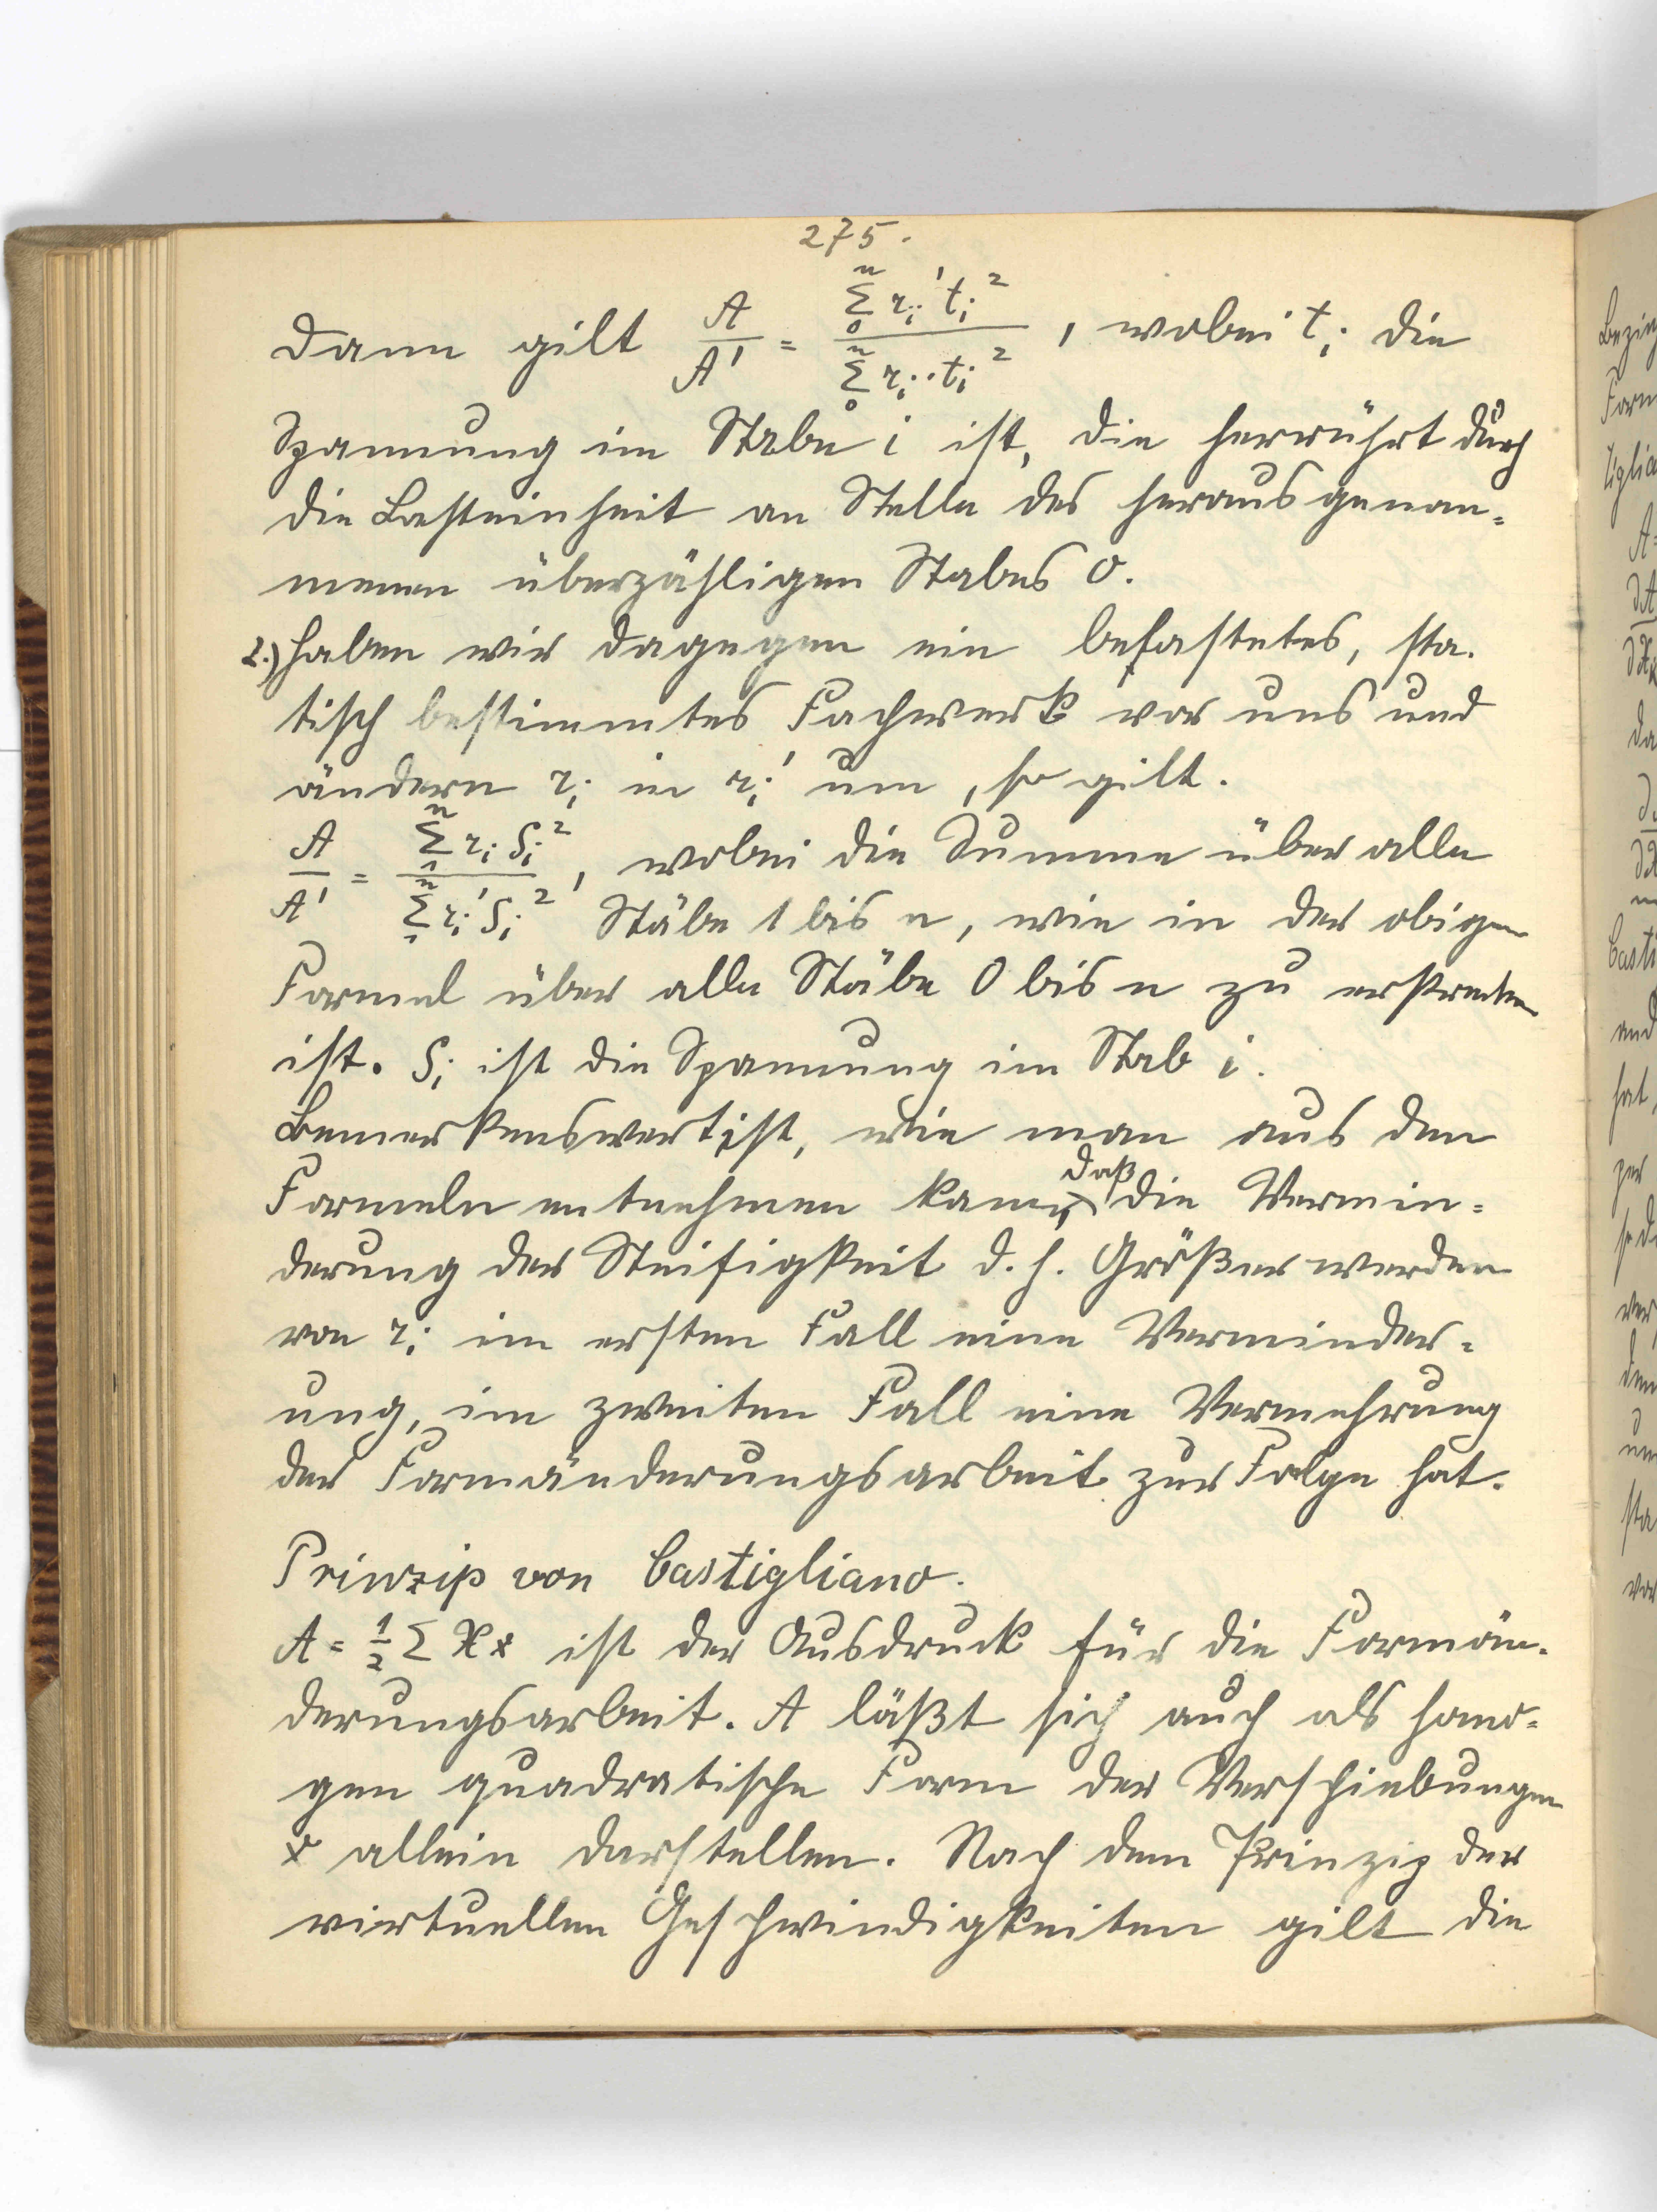 275.
Dann gilt A/A' = Σ₀ⁿ rᵢ' tᵢ² / Σ₀ⁿ rᵢ · tᵢ² , wobei tᵢ die
Spannung im Stabe i ist, die herrührt durch
die Lasteinheit an Stelle des herausgenom=
menen überzähligen Stabes 0.
2.) Haben wir dagegen ein belastetes, sta-
tisch bestimmtes Fachwerk vor uns und
ändern rᵢ in rᵢ' um, so gilt.
A/A' = Σ₁ⁿ rᵢ Sᵢ² / Σ₁ⁿ rᵢ' Sᵢ² , wobei die Summe über alle
Stäbe 1 bis n, wie in der obigen
Formel über alle Stäbe 0 bis n zu erstrecken
ist. Sᵢ ist die Spannung im Stab i.
Bemerkenswert ist, wie man aus den
Formeln entnehmen kann, daß die Vermin=
derung der Steifigkeit d. h. Größer werden
von rᵢ im ersten Fall eine Verminder=
ung, im zweiten Fall eine Vermehrung
der Formänderungsarbeit zur Folge hat.
Prinzip von Castigliano.
A = ½ Σ X x ist der Ausdruck für die Formän-
derungsarbeit. A läßt sich auch als homo=
gen quadratische Form der Verschiebungen
x allein darstellen. Nach dem Prinzip der
virtuellen Geschwindigkeiten gilt die